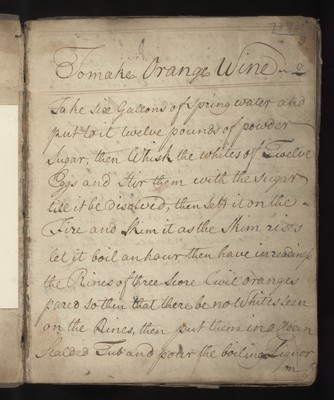 To make Orange Wine
Take six Gallons of Spring water and
put to it twelve pounds of powder
Sugar, then Whisk the whites of Twelve
Eggs and stir them with the Sugar
till it be disolved, then sett it on the
Fire and skim it as the skim rises
let it boil an hour then have in readiness
the Rines of three score Civil oranges
pared so thin that there be no Whites seen
on the Rines, then put them in a clean
scalded Tub and pour the boiling Liquor
on